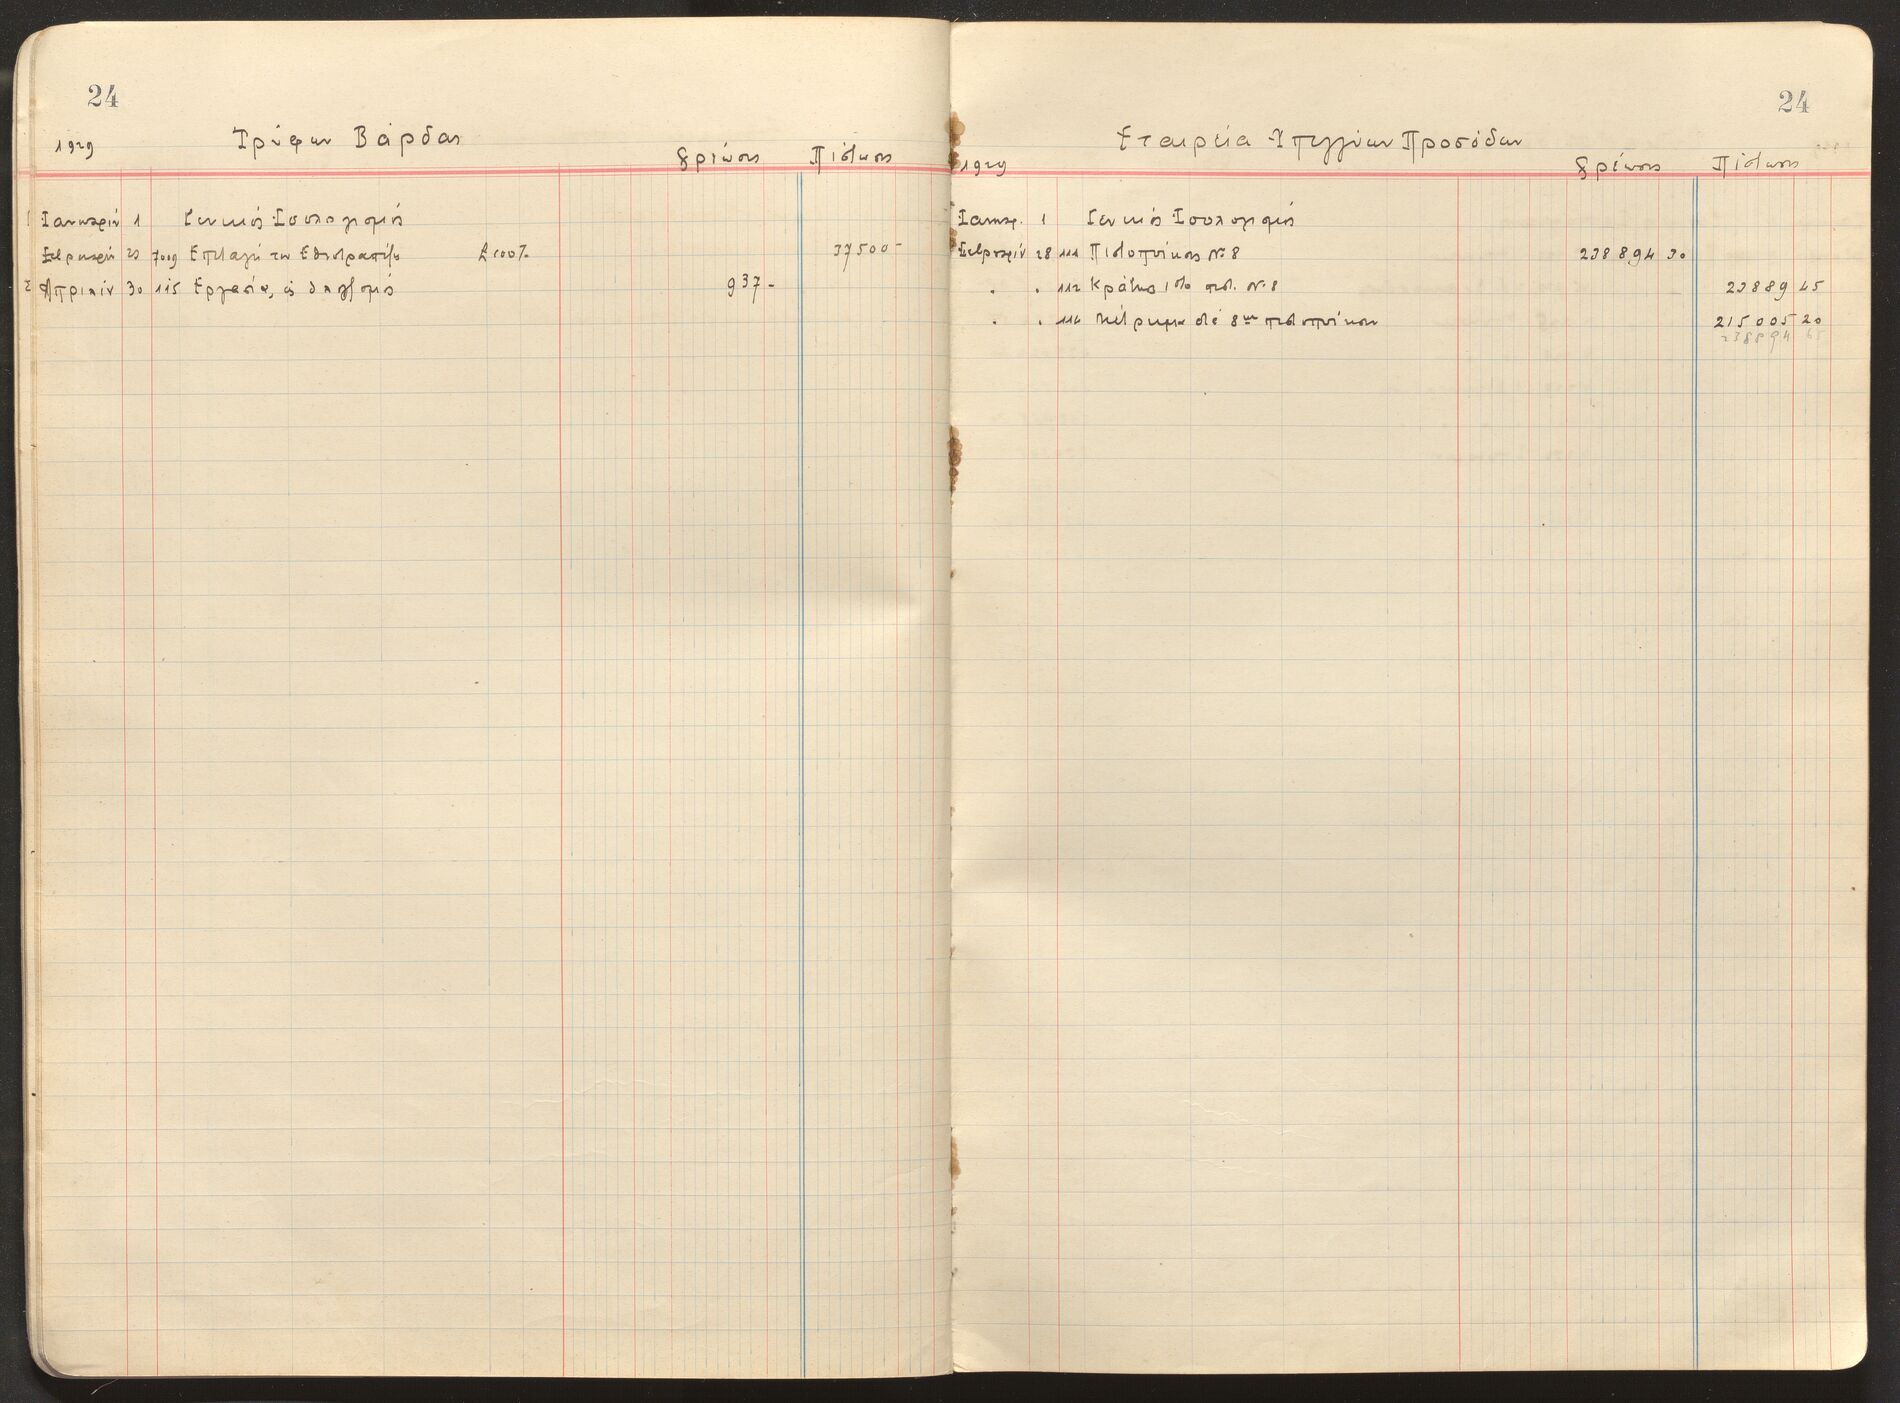 24
1929 Τρύφων Βάρδας Χρέωσις Πίστωσις
Ιανουαρίου 1 Γενικός Ισολογισμός
Φεβρουαρίου 23 7009 Επιταγή των £ 100%. 37500-
Απριλίου 30 115 Εργασίαι, 937-
24
Εταιρεία Υπεγγύων Προσόδων
1929 Χρέωσις Πίστωσις
Ιανουαρ. 1 Γενικός Ισολογισμός
Φεβρουαρίου 28 111 Πιστοποίησις Νο 8 238894 30
" " 112 Κράτησις πιστ. Νο 8 23889 45
" " 114 διά 8ην πιστοποίησιν 215005 20
238894 65